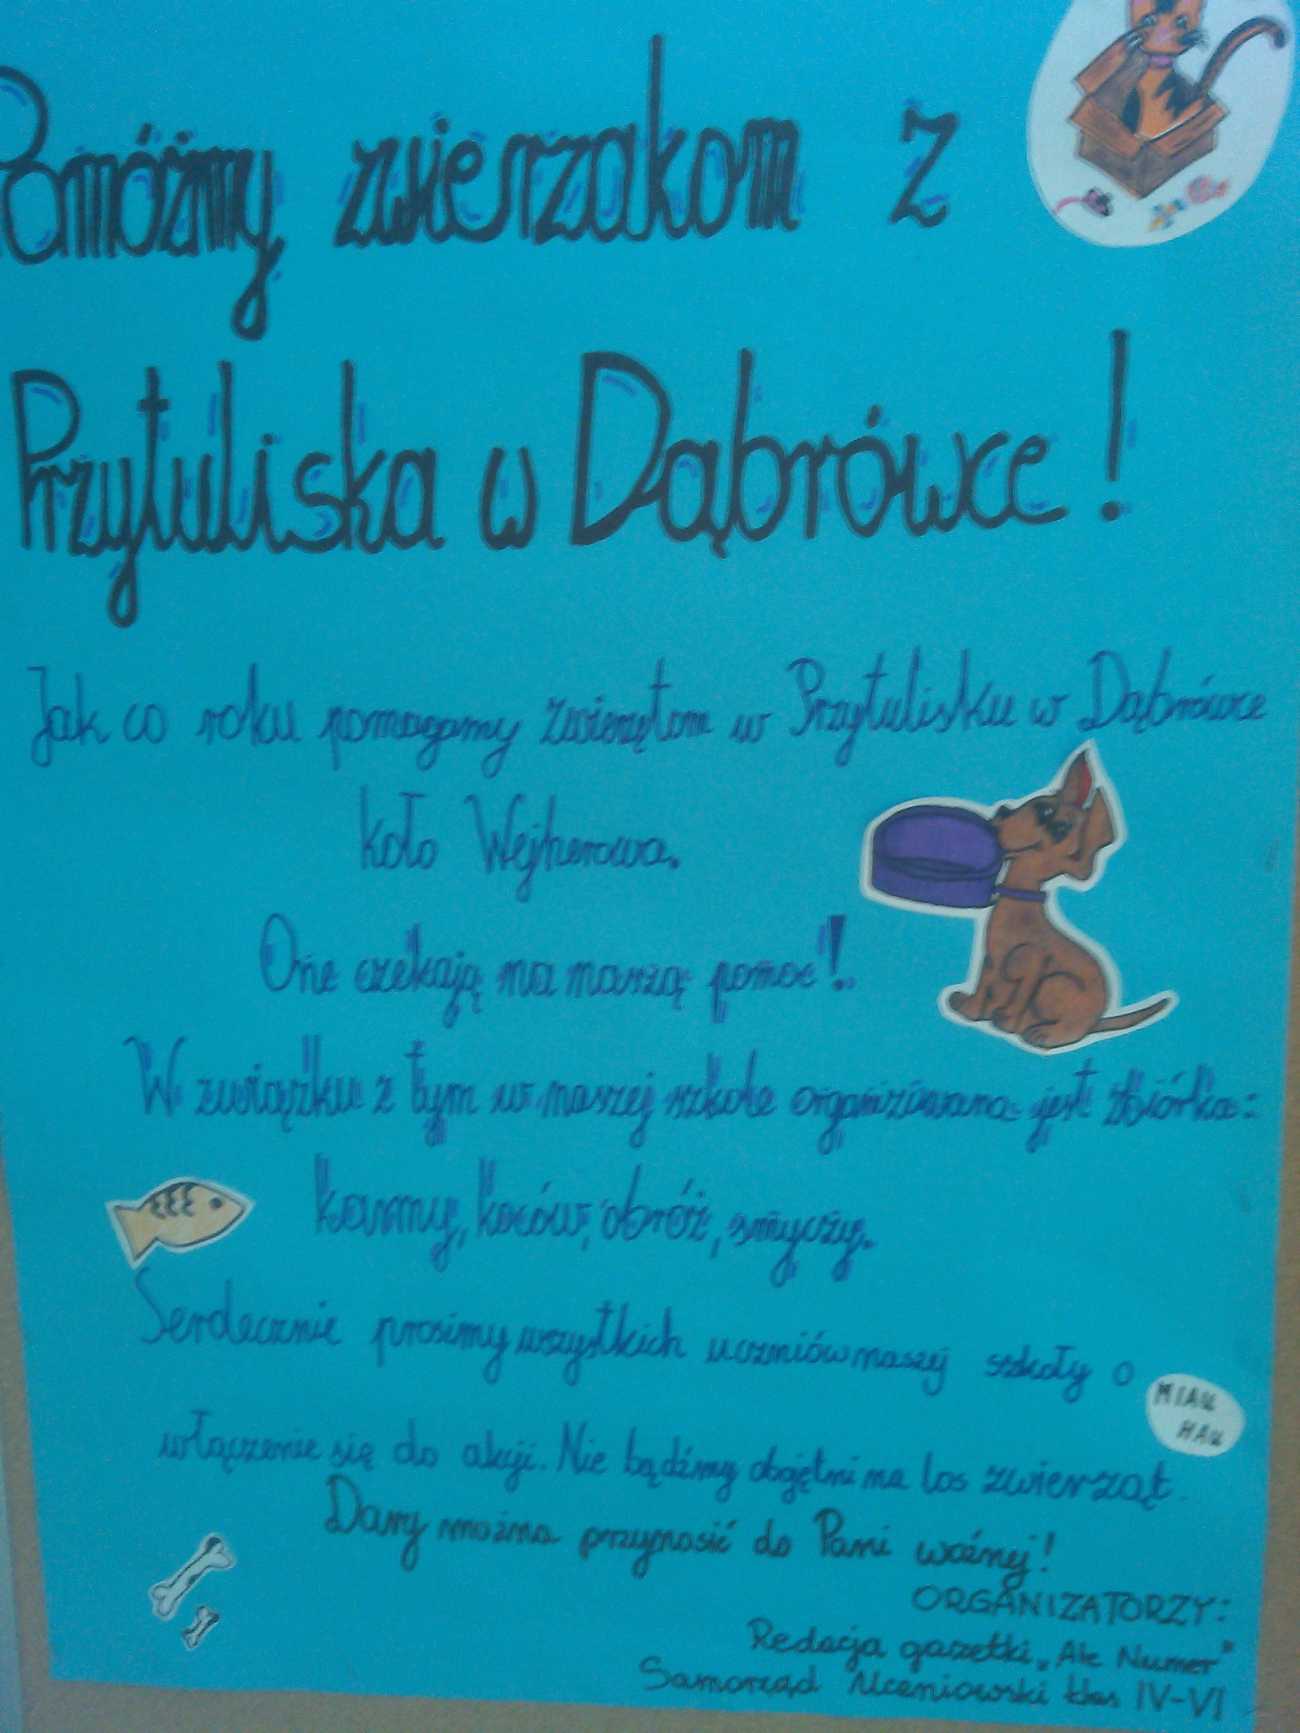 Pomóżmy zwierzakom z
Przytuliska w Dąbrówce!
Jak co roku pomagamy zwierzętom w Przytulisku w Dąbrówce
koło Wejherowa.
One czekają na naszą pomoc!
W związku z tym w naszej szkole organizowana jest zbiórka:
karmy, koców, obróż, smyczy.
Serdecznie prosimy wszystkich uczniów naszej szkoły o
MIAU
HAU
włączenie się do akcji. Nie bądźmy obojętni na los zwierząt.
Dary można przynosić do Pani woźnej!
ORGANIZATORZY:
Redacja gazetki „Ale Numer”
Samorząd Uczniowski klas IV-VI